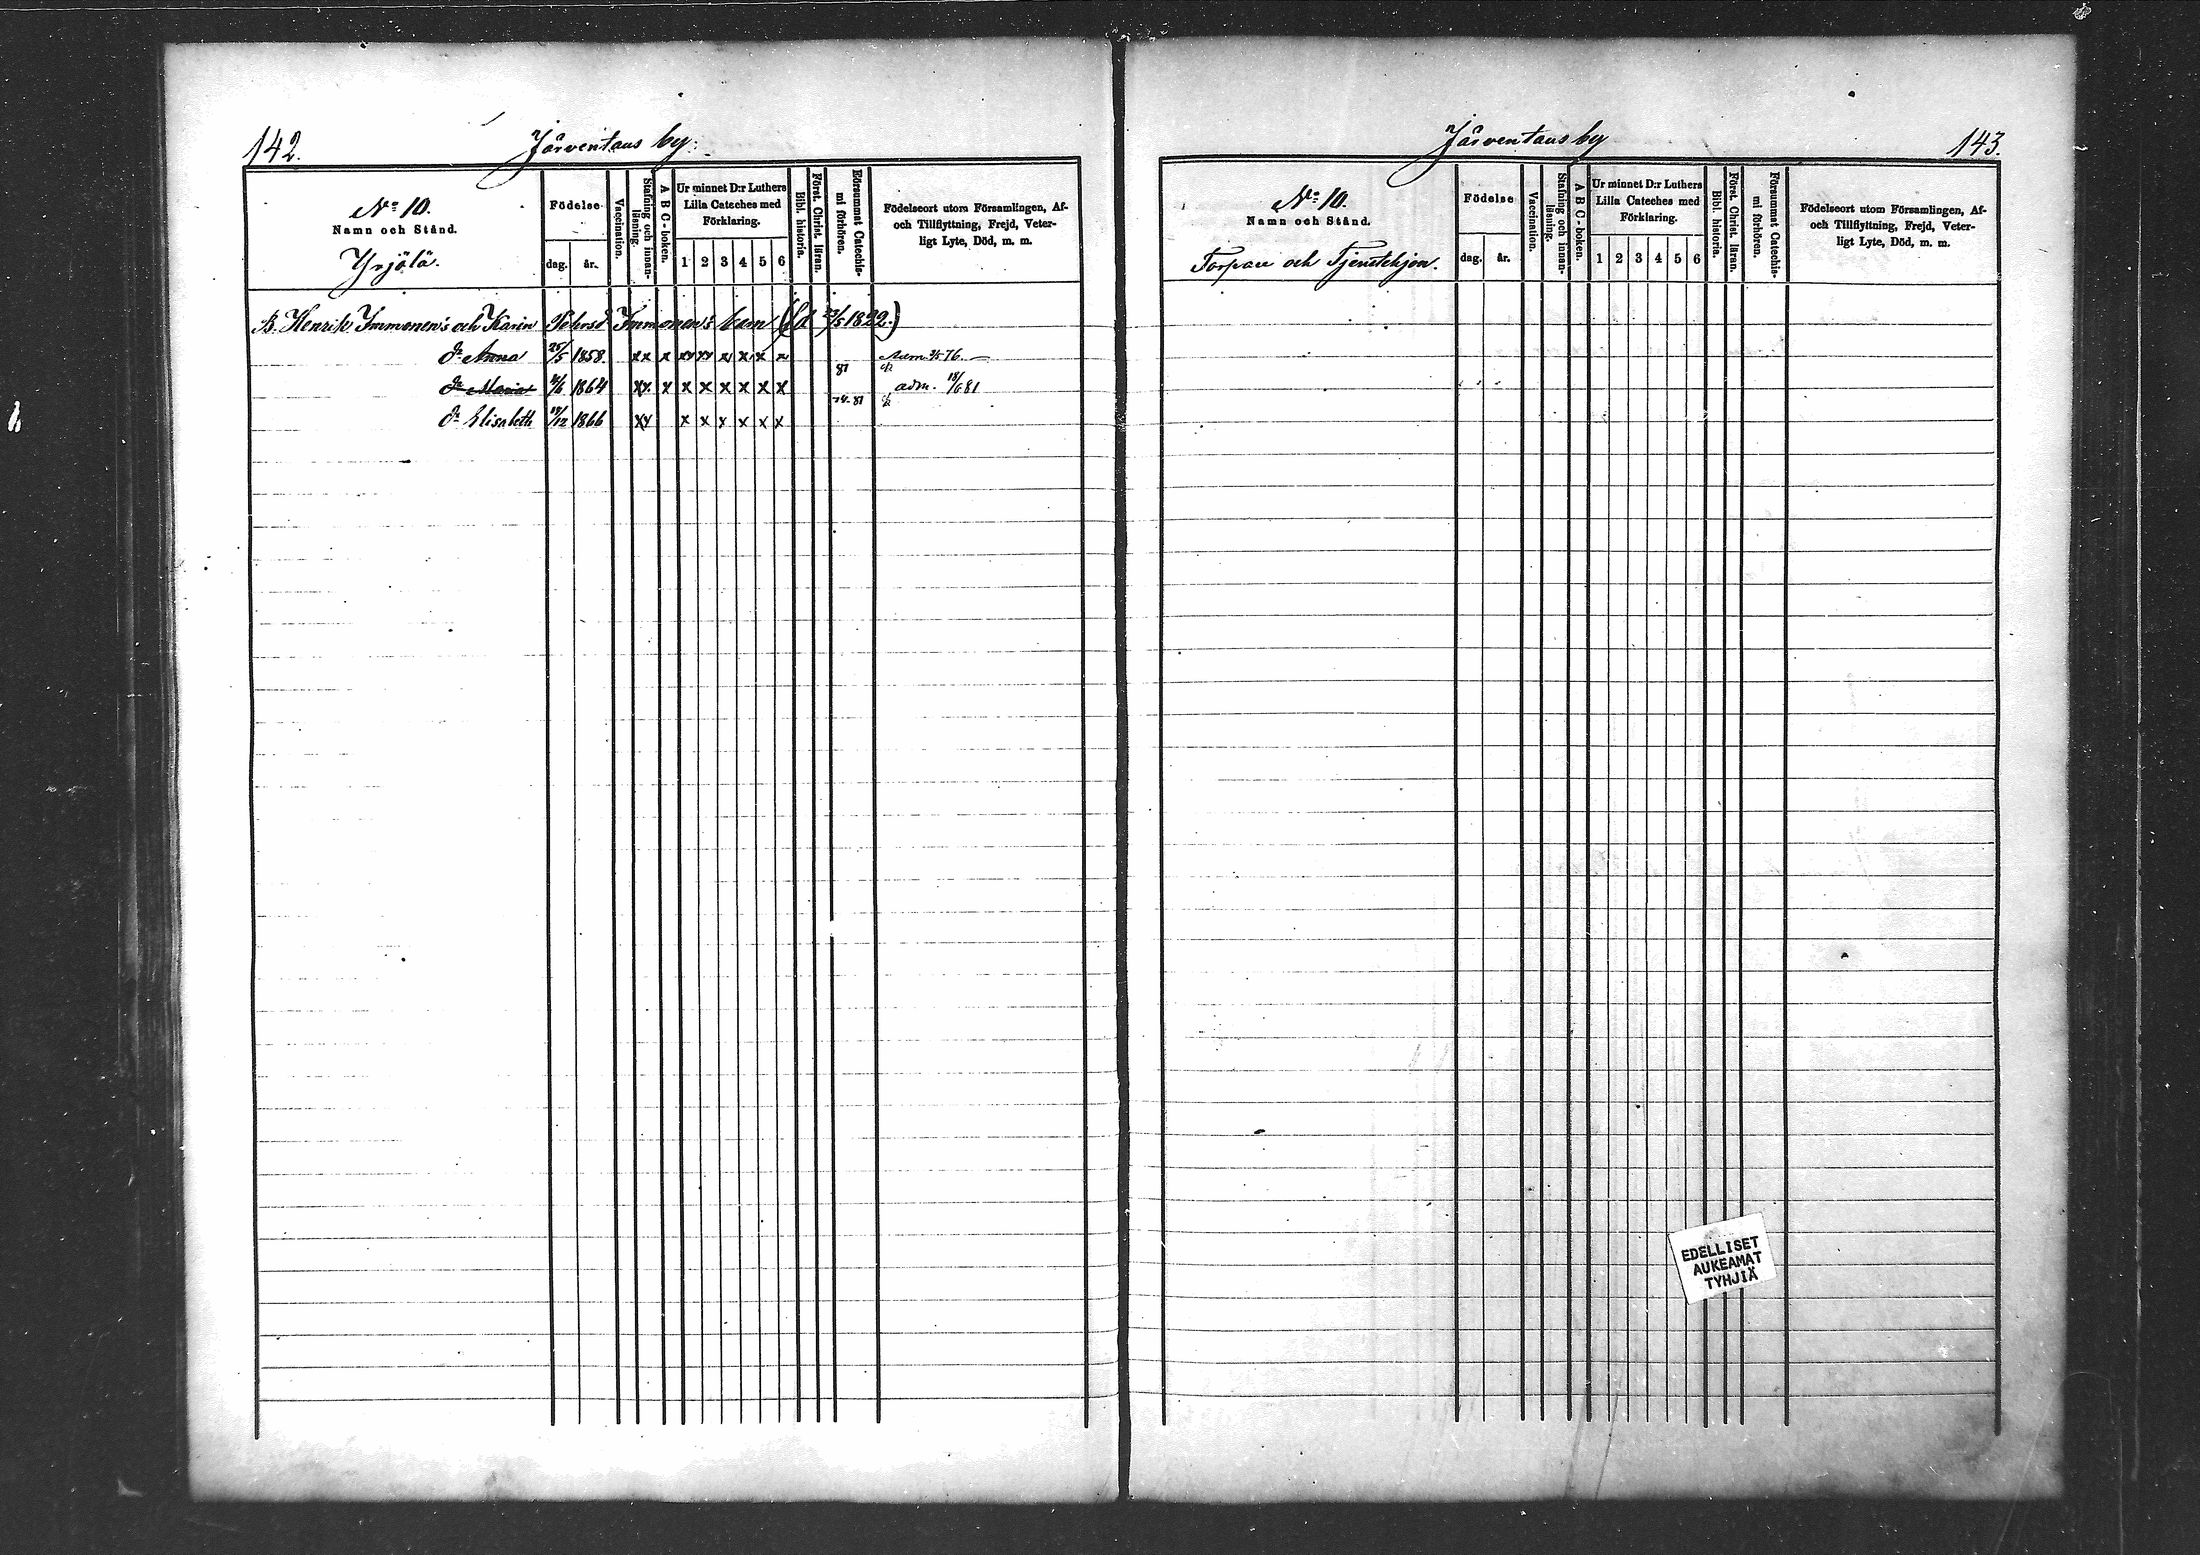 142.
Järventaus by.
№ 10.
Namn och Stånd.
Yrjölä.
Födelse
dag.
år.
Vaccination.
Stafning och innanläsning.
A B C-boken.
Ur minnet D:r Luthers
Lilla Cateches med
Förklaring.
1 2 3 4 5 6
Bibl. historia.
Först. Christ. läran.
Försummat Catechismi förhören.
Födelseort utom Församlingen, Af-
och Tillflyttning, Frejd, Veter-
ligt Lyte, Död, m. m.
B. Henrik Immonen's och Karin Pehrsd Immonen's barn (fd 23/5 1822.)
dr Anna 25/5 1858. xx x xx xx x x x x
87
dr Maria 1864 xx x x x x x x x adm. 18/6 81
74. 87
dr Elisabeth 19/12 1866 xx x x x x x x
Järventaus by
143.
№ 10.
Namn och Stånd.
Torpare och Tjenstehjon.
Födelse
dag.
år.
Vaccination.
Stafning och innanläsning.
A B C-boken.
Ur minnet D:r Luthers
Lilla Cateches med
Förklaring.
1 2 3 4 5 6
Bibl. historia.
Först. Christ. läran.
Försummat Catechismi förhören.
Födelseort utom Församlingen, Af-
och Tillflyttning, Frejd, Veter-
ligt Lyte, Död, m. m.
EDELLISET
AUKEAMAT
TYHJIÄ